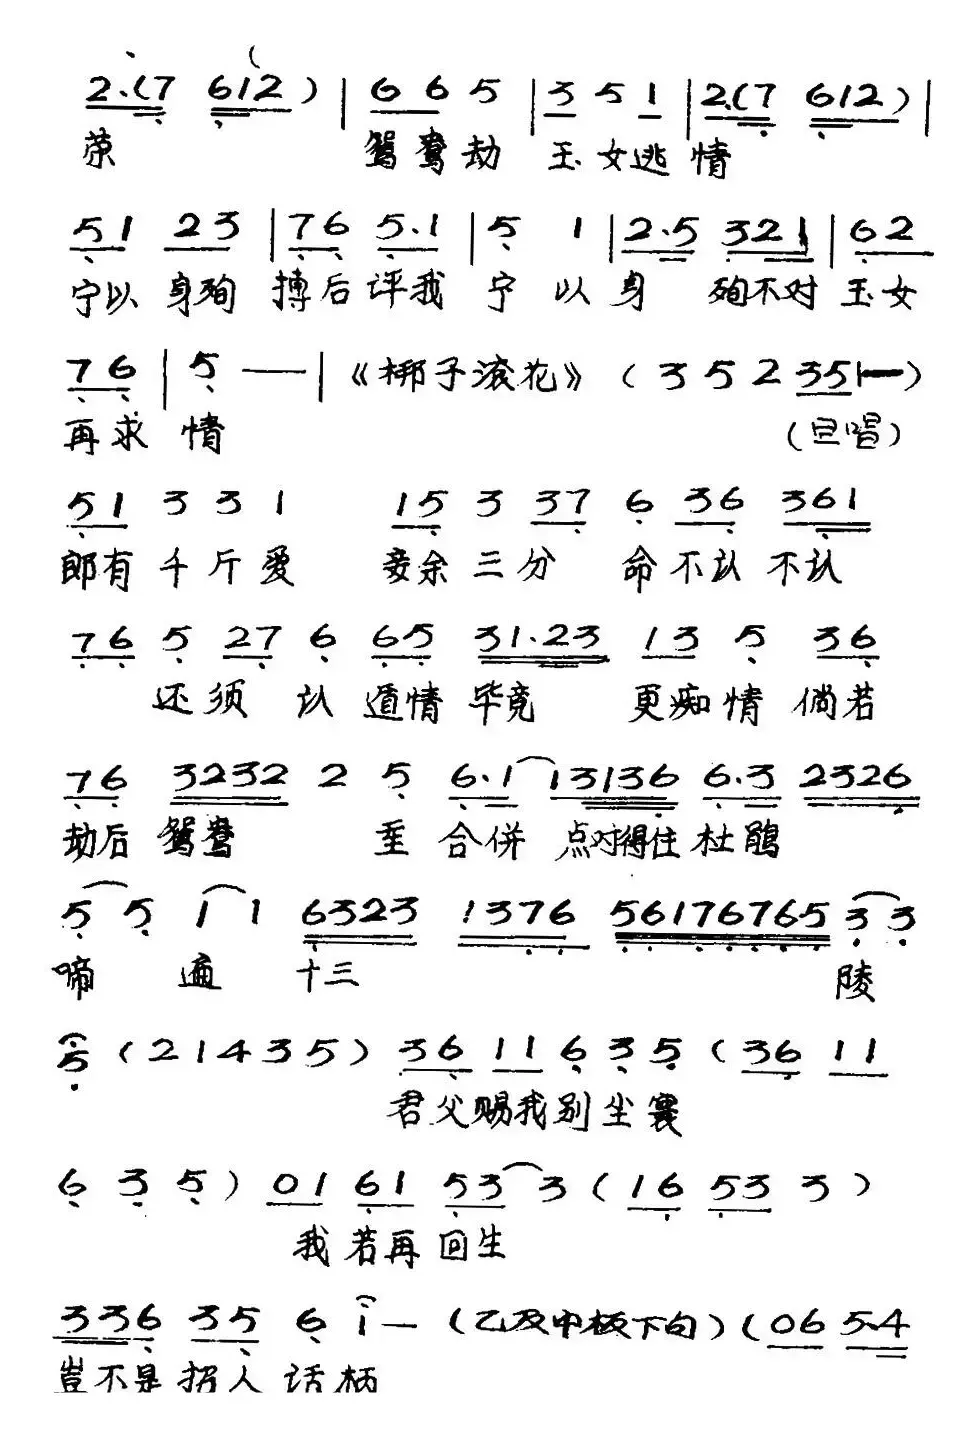 2.(7 612) | 6 6 5 | 3 5 1 | 2.(7 612) |
荣 鸳鸯劫 玉女逃情
51 23 | 76 5.1 | 5 1 | 2.5 321 | 62
宁以身殉 搏后评我 宁以身 殉不对玉女
76 | 5 — | 《梆子滚花》 (3 5 2 35 1—)
再求情 (旦唱)
51 3 3 1 15 3 37 6 36 361
郎有千斤爱 妾余三分 命不认不认
76 5 27 6 65 31.23 13 5 36
还须认 遁情毕竟 更痴情倘若
76 3232 2 5 6.1 13136 6.3 2326
劫后鸳鸯 重合併点对得住杜鹃
5 5 1 1 6323 1376 56176765 3 3
啼遍十三 陵
5 (21435) 36 11 6 3 5 (36 11
君父赐我别尘寰
6 3 5) 01 61 53 3 (16 53 3)
我若再回生
336 35 6 i — (乙反中板下句) (06 5.4
岂不是招人话柄